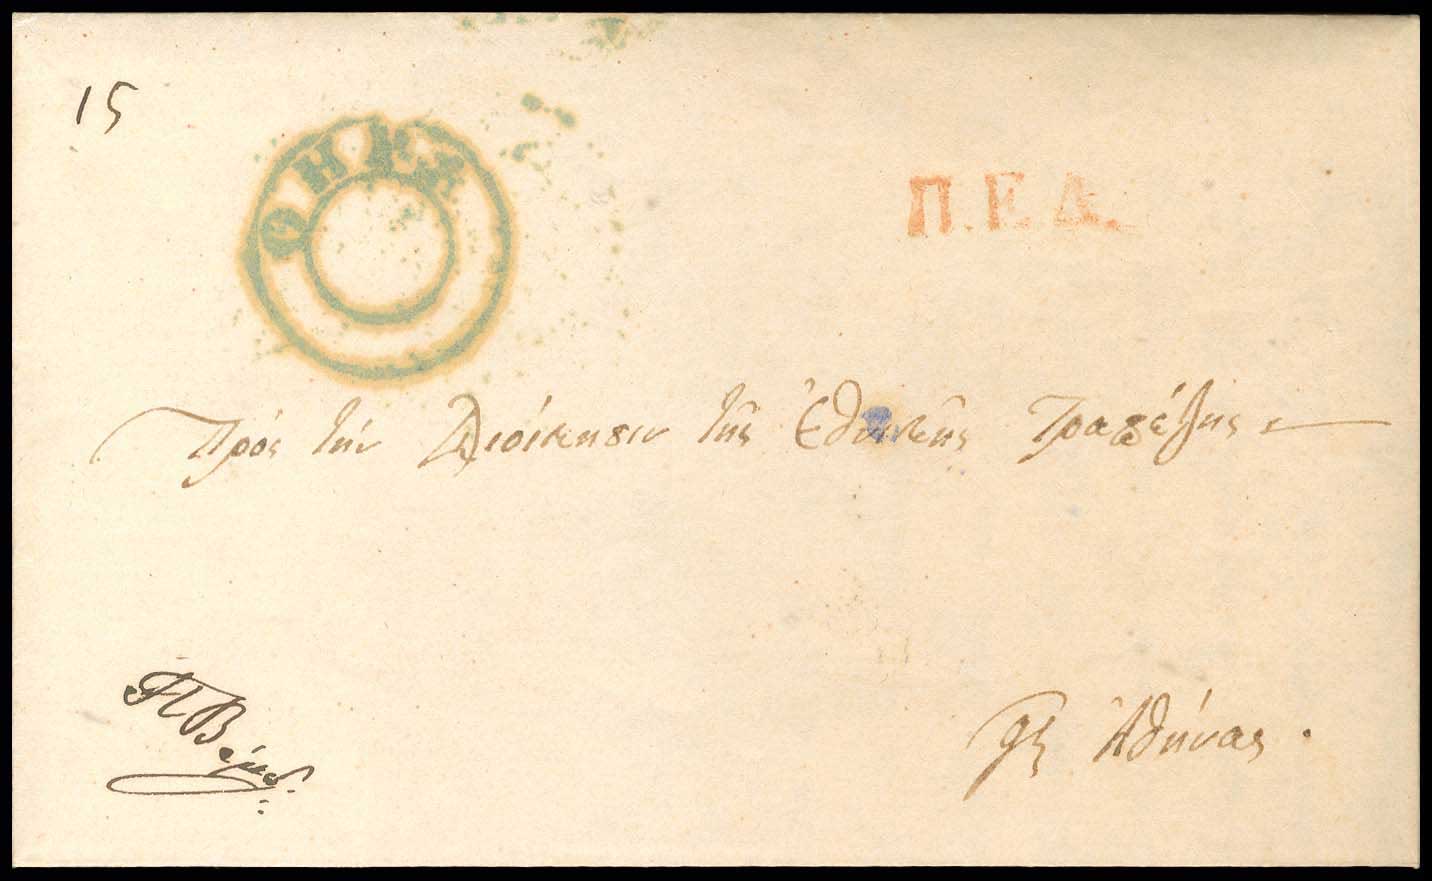 15
ΘΗΡΑ
Π.Ε.Δ.
Πρὸς τὴν Διοίκησιν τῆς Ἐθνικῆς Τραπέζης
εἰς Ἀθήνας.